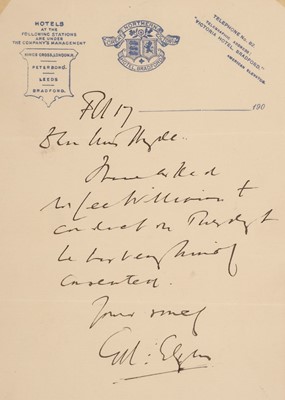 HOTELS
AT THE
FOLLOWING STATIONS
ARE UNDER
THE COMPANY'S MANAGEMENT
KINGS CROSS, LONDON, N.
PETERBORO'.
LEEDS
BRADFORD.
GREAT NORTHERN
HOTEL BRADFORD
TELEPHONE No. 
TELEGRAPHIC ADDRESS:
"VICTORIA HOTEL, BRADFORD."
AMERICAN ELEVATOR.
190
Feb 17
Dear Miss Hyde.
I have asked
Mr Lee Williams to
conduct on Tuesday &
he has very kindly
consented.
Yours sincely
Ed: Elgar